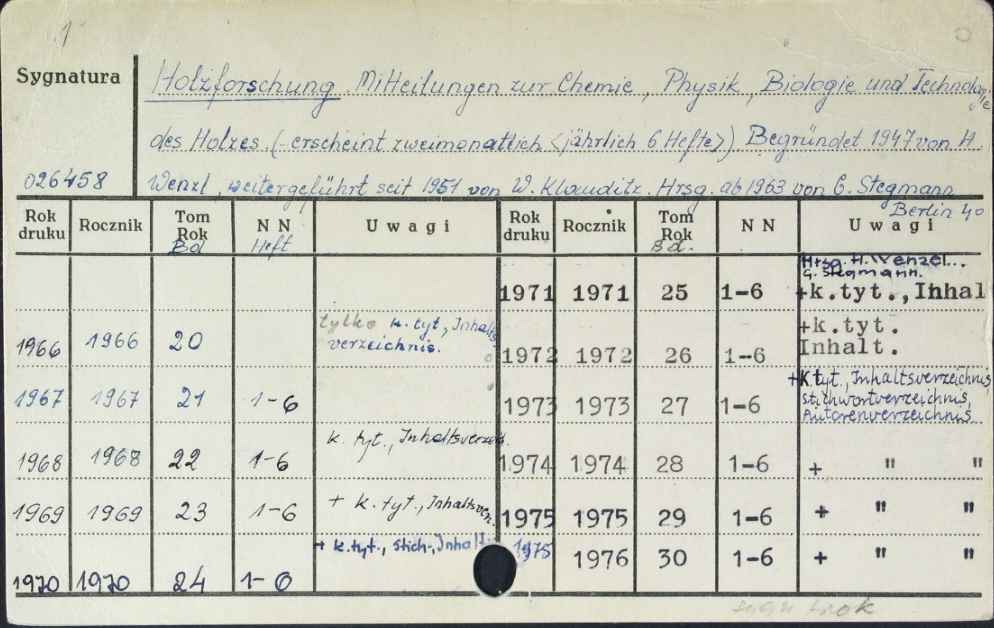 1
Sygnatura
Holzforschung. Mitteilungen zur Chemie, Physik, Biologie und Technologie
des Holzes. (- erscheint zweimonatlich <jährlich 6 Hefte>) Begründet 1947 von H.
026458 Wenzl, weitergeführt seit 1951 von W. Klauditz. Hrsg. ab 1963 von G. Stegmann
Berlin 40
Rok druku Rocznik Tom Rok Bd NN Heft Uwagi Rok druku Rocznik Tom Rok Bd. NN Uwagi
Hrsg. H. Wenzel...
G. Stegmann.
1971 1971 25 1-6 +k.tyt., Inhal
1966 1966 20 tylko k. tyt, Inhalts
verzeichnis.
1972 1972 26 1-6 +k.tyt.
Inhalt.
1967 1967 21 1-6
1973 1973 27 1-6 +K.tyt., Inhaltsverzeichnis,
Stichwortverzeichnis,
Autorenverzeichnis
1968 1968 22 1-6 k. tyt., Inhaltsverzei.
1974 1974 28 1-6 + " "
1969 1969 23 1-6 + k.tyt., Inhaltsver.
1975 1975 29 1-6 + " "
1970 1970 24 1-6 + k.tyt., Stich-, Inhalt
1975 1976 30 1-6 + " "